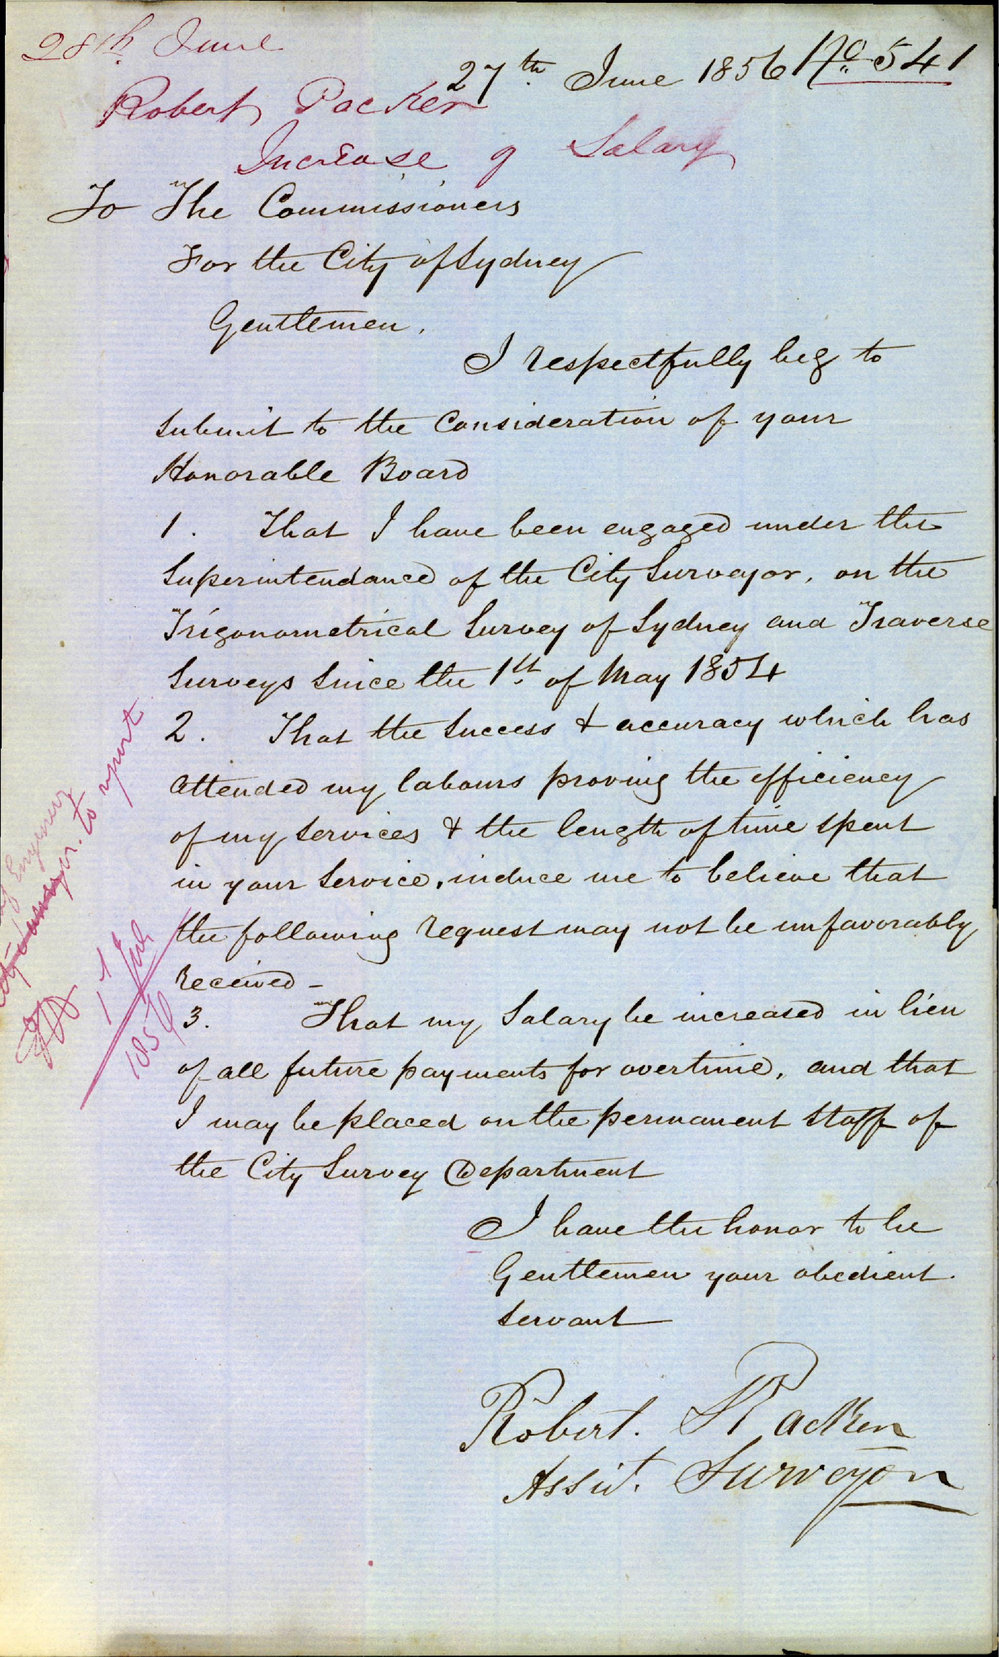 28th. June
27th June 1856 No. 541
Robert Packer
Increase of Salary
To The Commissioners
For the City of Sydney
Gentlemen.
I respectfully beg to
submit to the Consideration of your
Honorable Board
1. That I have been engaged under the
Superintendance of the City Surveyor, on the
Trigonometrical Survey of Sydney and Traverse
Surveys Since the 1st. of May 1854
2. That the Success & accuracy which has
attended my labours proving the efficiency
of my Services & the length of time spent
in your Service, induce me to believe that
the following request may not be unfavorably
received -
3. That my Salary be increased in lieu
of all future payments for overtime, and that
I may be placed on the permanent Staff of
the City Survey Department
I have the honor to be
Gentlemen your obedient
Servant
Robert. Packer
Assist. Surveyor
Engineer
to report
1st July
1856